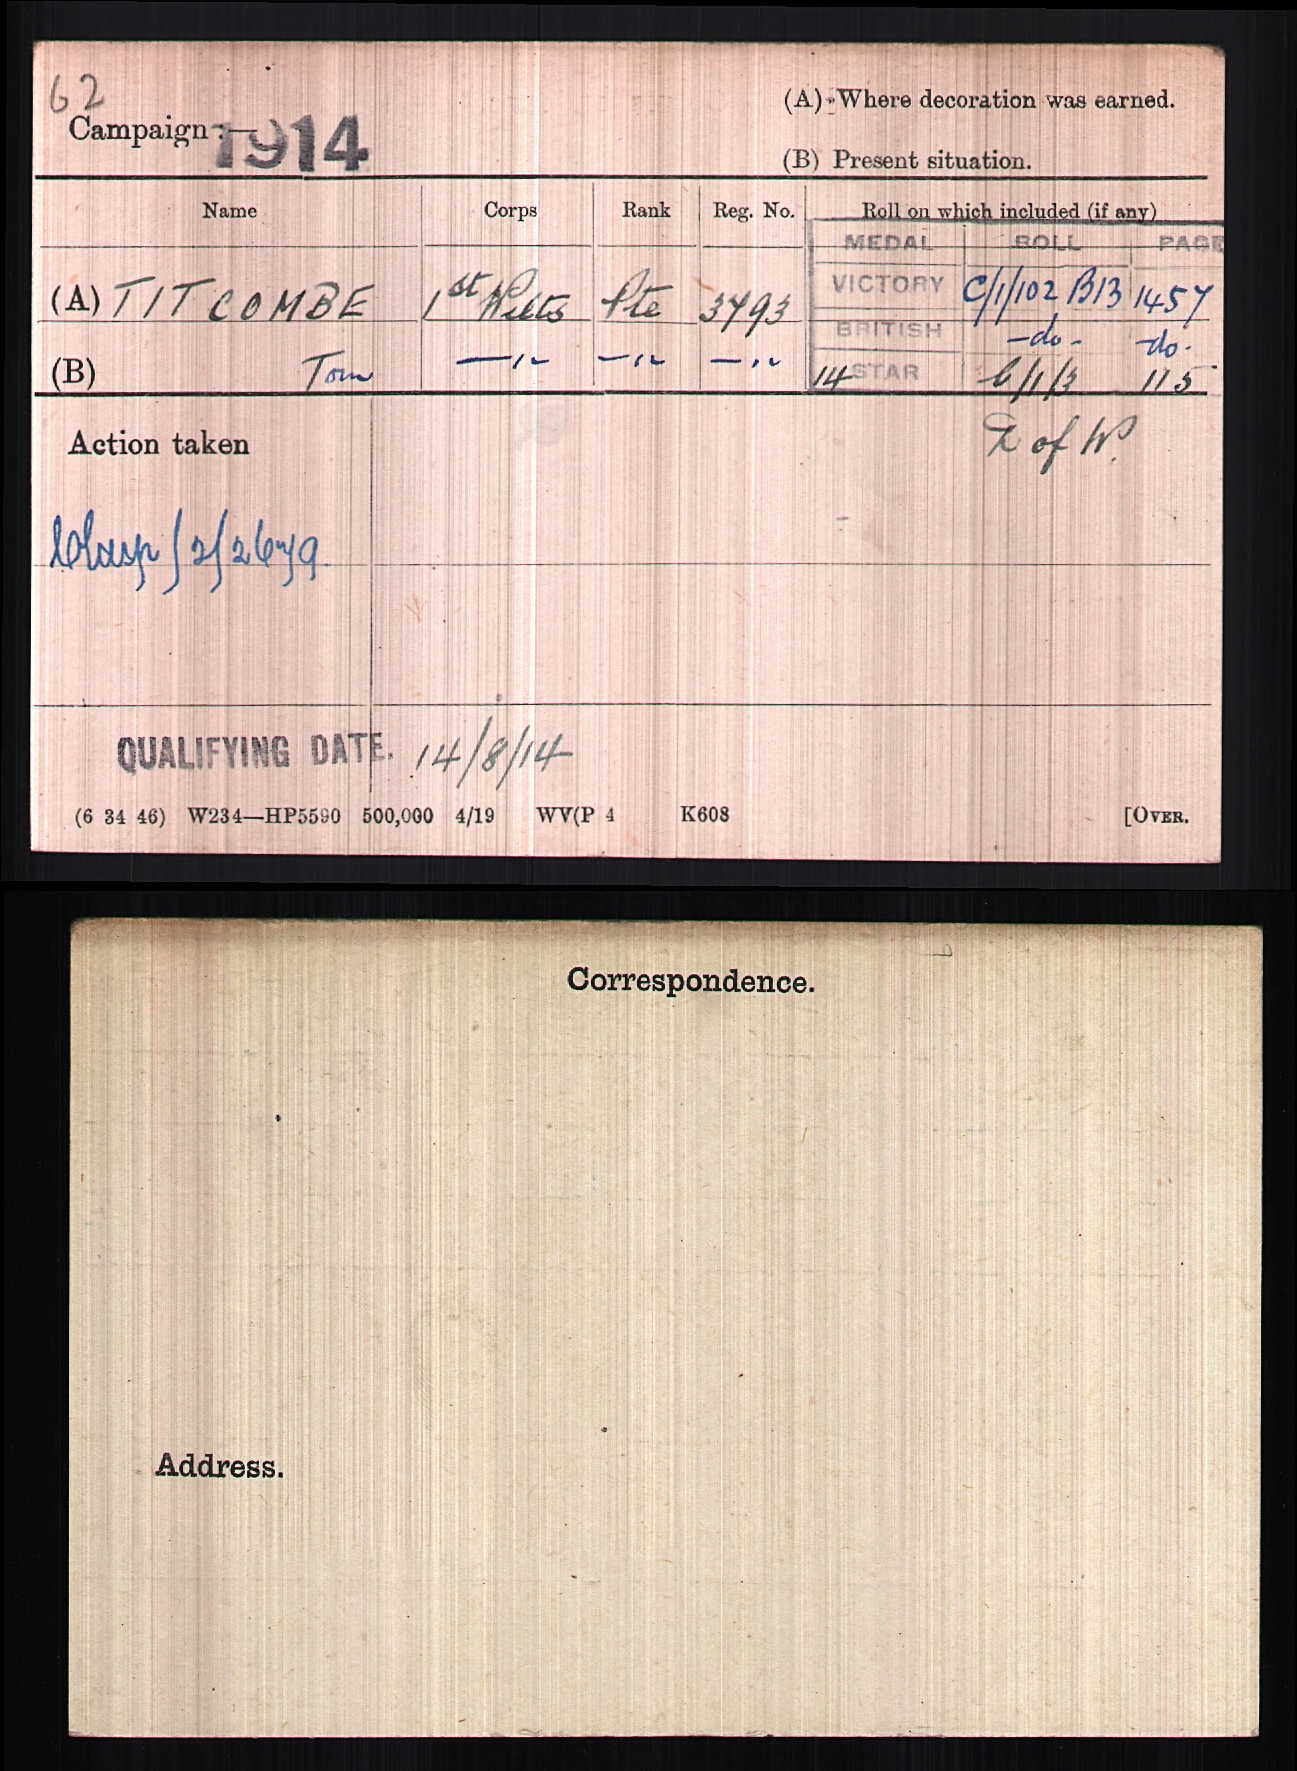 62
Campaign :— 1914
(A) Where decoration was earned.
(B) Present situation.
Name Corps Rank Reg. No. Roll on which included (if any)
MEDAL ROLL PAGE
(A) TITCOMBE 1st Wilts Pte 3793 VICTORY C/1/102 B13 1457
BRITISH -do- -do-
(B) Tom —"— —"— —"— 14 STAR C/1/3 115
Action taken
D of W.
Clasp/2/2679.
QUALIFYING DATE. 14/8/14
(6 34 46) W234—HP5590 500,000 4/19 WV(P 4 K608 [OVER.
Correspondence.
Address.